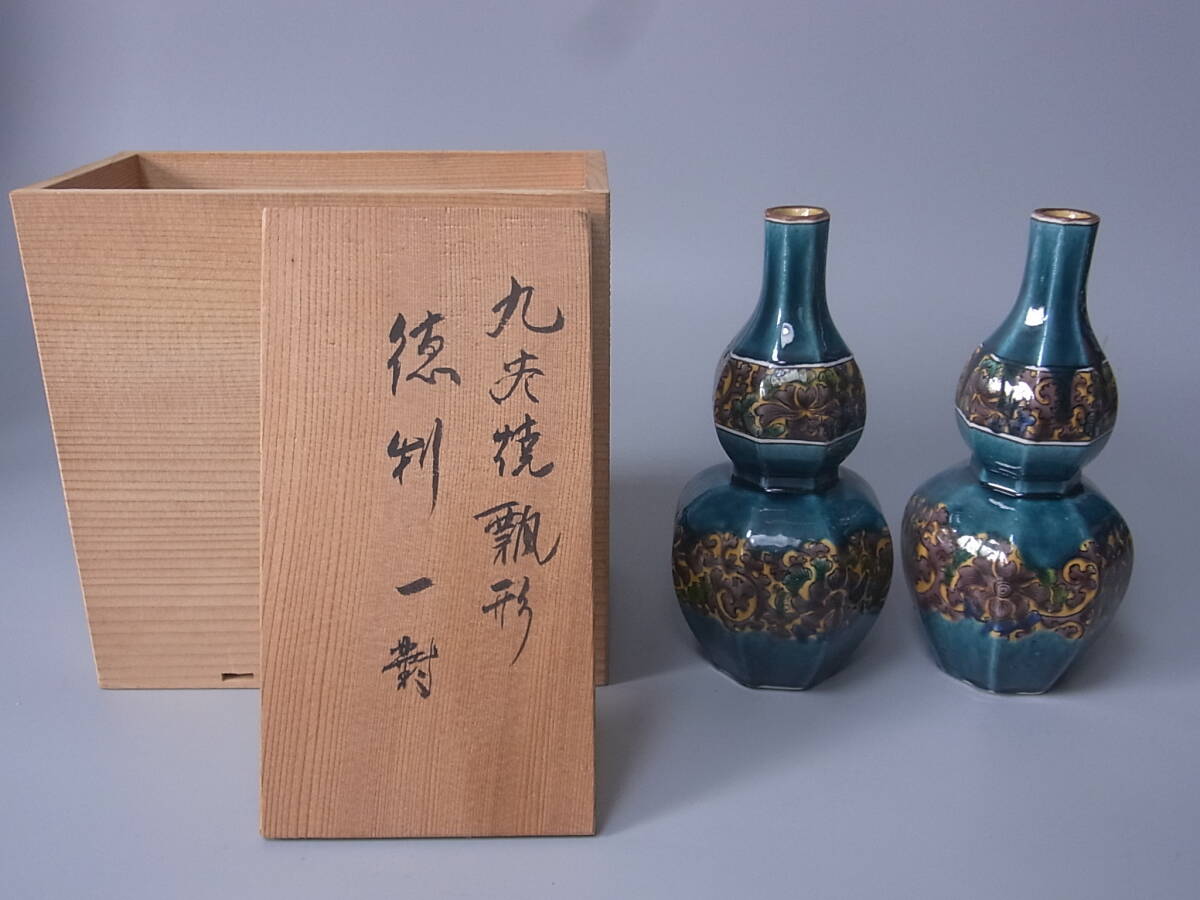 九谷焼瓢形
徳利一對